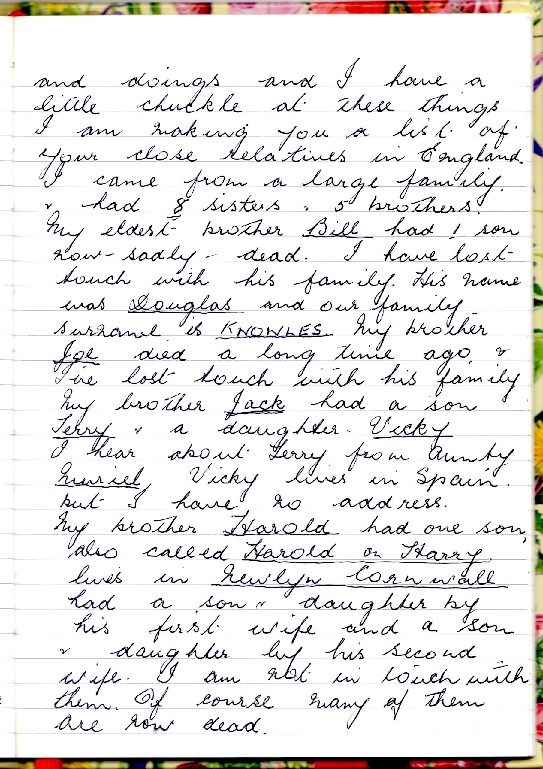 and doings and I have a
little chuckle at these things
I am making you a list of
your close relatives in England.
I came from a large family.
& had 8 sisters & 5 brothers.
My eldest brother Bill had 1 son
now - sadly - dead. I have lost
touch with his family. His name
was Douglas and our family
surname is KNOWLES. My brother
Joe died a long time ago, &
I've lost touch with his family
My brother Jack had a son
Terry & a daughter. Vicky
I hear about Terry from Aunty
Muriel, Vicky lives in Spain.
but I have no address.
My brother Harold had one son,
also called Harold or Harry.
lives in Newlyn Cornwall
had a son & daughter by
his first wife and a son
& daughter by his second
wife. I am not in touch with
them. Of course many of them
are now dead.